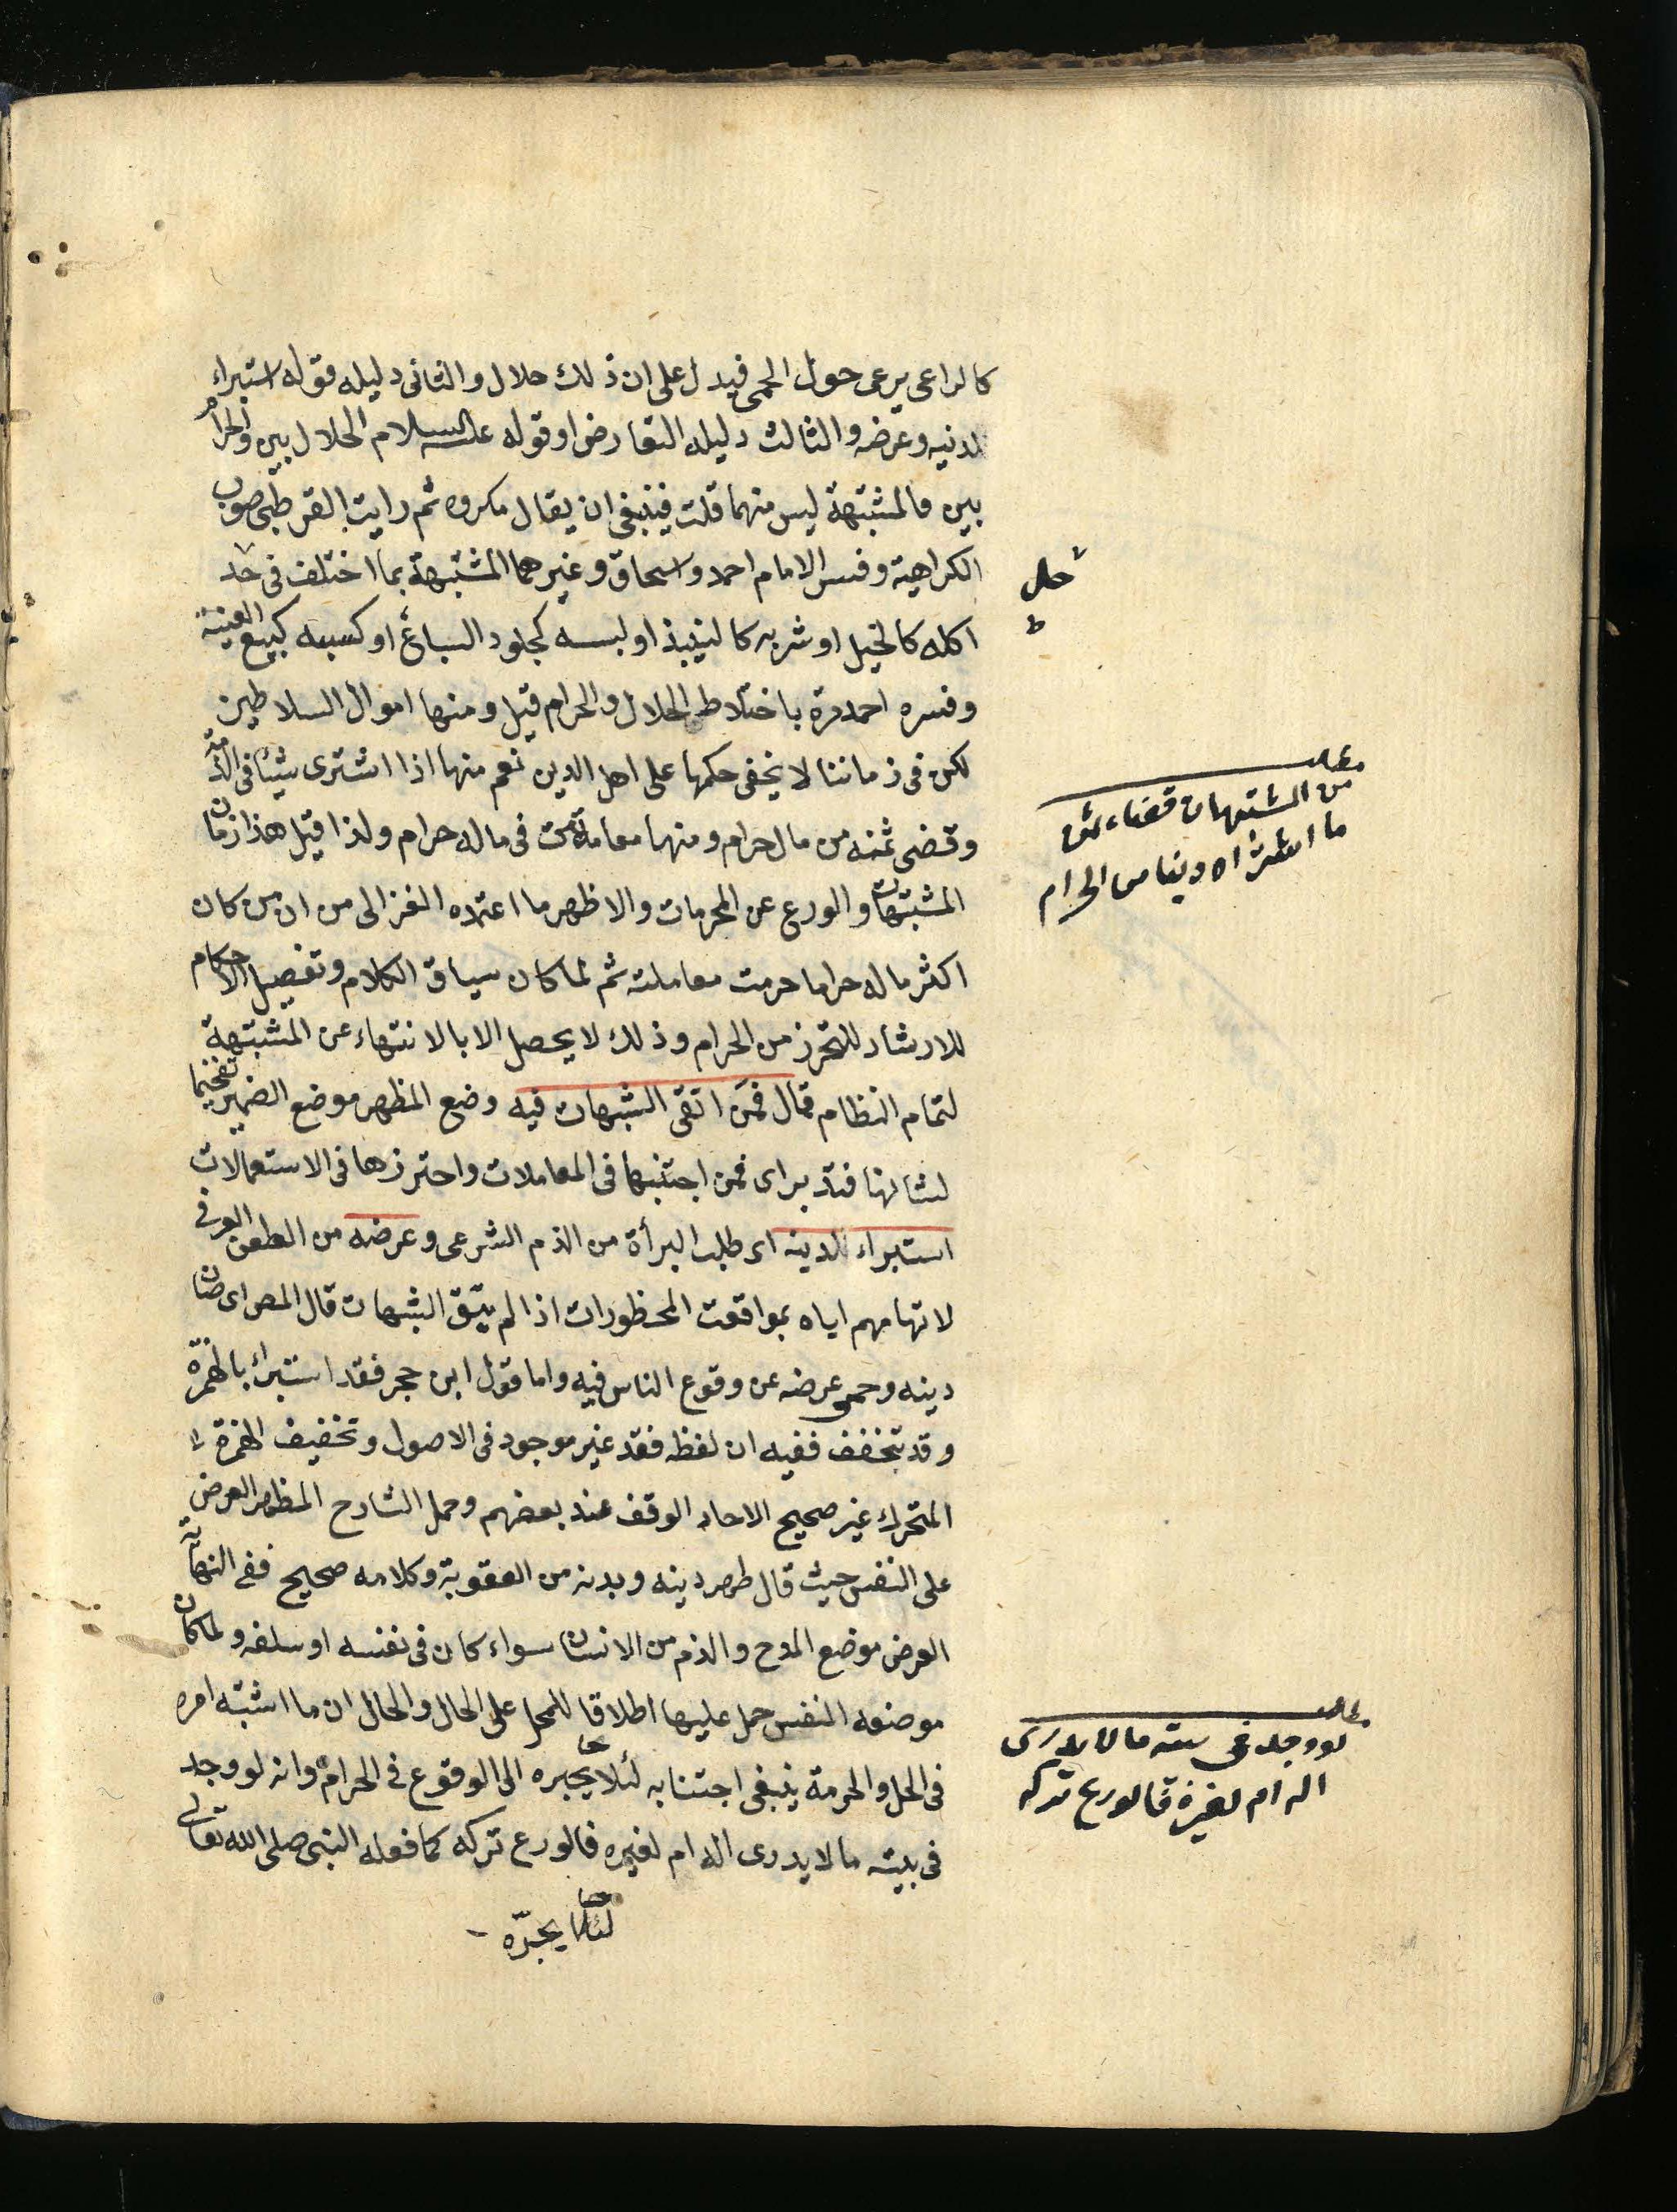 كالراعى يرعى حول الحمى فيدل على ان ذلك حلال والثانى دليله قوله استبراء
لدينه وعرضه والثالث دليله التعارض او قوله عليه السلام الحلال بين والحرام
بين فالمشتبهة ليس منهما قلت فينبغى ان يقال مكروه ثم رايت القرطبى صوب
الكراهية وفسر الامام احمد واسحاق وغيرهما المشتبهة بما اختلف فى حد
حل
ط
اكله كالخيل او شربه كالنبيذ او لبسه كجلود السباع او كسبه كبيع العينة
وفسره احمد مرة باختلاط الحلال والحرام قيل ومنها اموال السلاطين
لكن فى زماننا لا يخفى حكمها على اهل الدين نعم منها اذا اشترى شيئا فى الذمة
وقضى ثمنه من مال حرام ومنها معاملة من فى ماله حرام ولذا قيل هذا زمان
المشتبهات والورع عن المحرمات والاظهر ما اعتمده الغزالى من ان من كان
اكثر ماله حراما حرمت معاملته ثم لما كان سياق الكلام وتفصيل الاحكام
للارشاد للتحرز من الحرام وذلك لا يحصل الا بالانتهاء عن المشتبهة
لتمام النظام قال فمن اتقى الشبهات فيه وضع المظهر موضع الضمير تفخيما
لشانها فتدبر اى فمن اجتنبها فى المعاملات واحترزها فى الاستعمالات
استبراء لدينه اى طلب البرأة من الذم الشرعى وعرضه من الطعن العرفى
لاتهامهم اياه بمواقعت المحظورات اذا لم يتق الشبهات قال المص اى صان
دينه وحمى عرضه عن وقوع الناس فيه واما قول ابن حجر فقد استبرأ بالهمزة
وقد يتخفف ففيه ان لفظ فقد غير موجود فى الاصول وتخفيف الهمزة
المتحرك غير صحيح الا حال الوقف عند بعضهم وحمل الشارح المظهر العرض
على النفس حيث قال طهر دينه وبدنه من العقوبة وكلامه صحيح ففى النهاية
العرض موضع المدح والذم من الانسان سواء كان فى نفسه او سلفه ولما كان
موضعه النفس حمل عليها اطلاقا للمحل على الحال والحال ان ما اشتبه امره
فى الحل والحرمة ينبغى اجتنابه لئلا يجبره الى الوقوع فى الحرام وانه لو وجد
فى بيته مالا يدرى اله ام لغيره فالورع تركه كما فعله النبى صلى الله تعالى
لئلا يجرّه
مطلب
من المشتبهات قضاء ثمن
ما اشتراه دينا من الحرام
مطلب
لو وجد فى بيته مالا لا يدرى
اله ام لغيره فالورع تركه